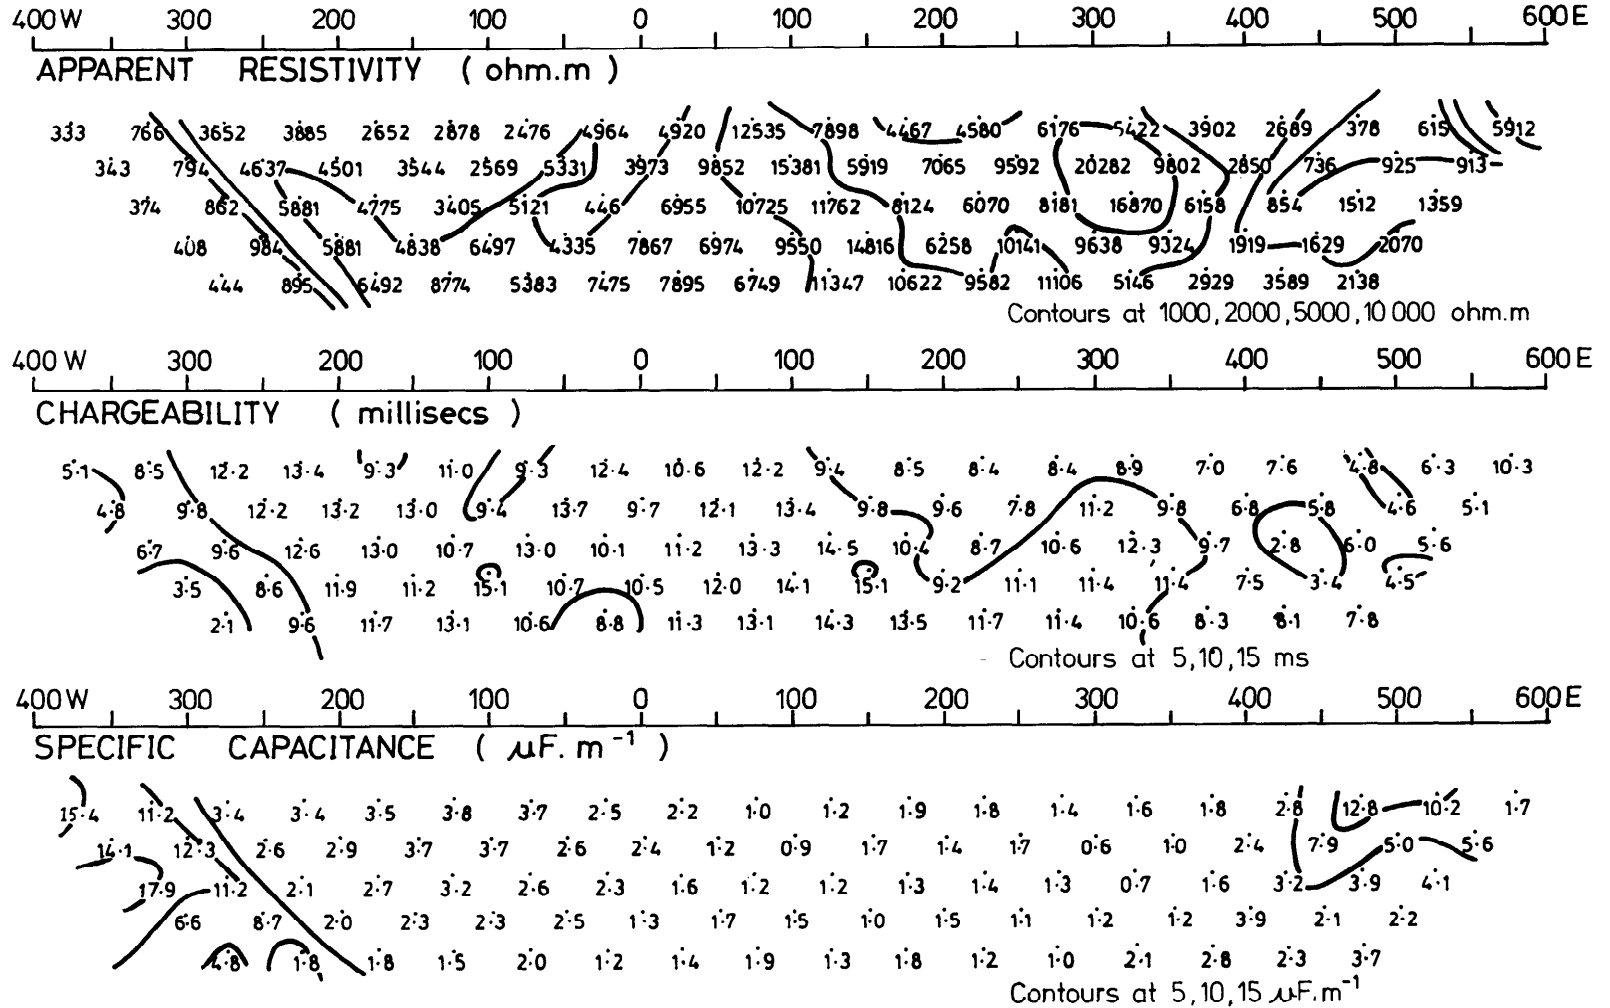 400 W 300 200 100 0 100 200 300 400 500 600 E
APPARENT RESISTIVITY ( ohm.m )
333 766 3652 3885 2652 2878 2476 4964 4920 12535 7898 4467 4580 6176 5422 3902 2689 378 615 5912
343 794 4637 4501 3544 2569 5331 3973 9852 15381 5919 7065 9592 20282 9802 2850 736 925 913
374 862 5881 4775 3405 5121 446 6955 10725 11762 8124 6070 8181 16870 6158 854 1512 1359
408 984 5881 4838 6497 4335 7867 6974 9550 14816 6258 10141 9638 9324 1919 1629 2070
444 895 6492 8774 5383 7475 7895 6749 11347 10622 9582 11106 5146 2929 3589 2138
Contours at 1000, 2000, 5000, 10 000 ohm.m
400 W 300 200 100 0 100 200 300 400 500 600 E
CHARGEABILITY ( millisecs )
5·1 8·5 12·2 13·4 9·3 11·0 9·3 12·4 10·6 12·2 9·4 8·5 8·4 8·4 8·9 7·0 7·6 4·8 6·3 10·3
4·8 9·8 12·2 13·2 13·0 9·4 13·7 9·7 12·1 13·4 9·8 9·6 7·8 11·2 9·8 6·8 5·8 4·6 5·1
6·7 9·6 12·6 13·0 10·7 13·0 10·1 11·2 13·3 14·5 10·4 8·7 10·6 12·3 9·7 2·8 6·0 5·6
3·5 8·6 11·9 11·2 15·1 10·7 10·5 12·0 14·1 15·1 9·2 11·1 11·4 11·4 7·5 3·4 4·5
2·1 9·6 11·7 13·1 10·6 8·8 11·3 13·1 14·3 13·5 11·7 11·4 10·6 8·3 8·1 7·8
Contours at 5, 10, 15 ms
400 W 300 200 100 0 100 200 300 400 500 600 E
SPECIFIC CAPACITANCE ( μF. m⁻¹ )
15·4 11·2 3·4 3·4 3·5 3·8 3·7 2·5 2·2 1·0 1·2 1·9 1·8 1·4 1·6 1·8 2·8 12·8 10·2 1·7
14·1 12·3 2·6 2·9 3·7 3·7 2·6 2·4 1·2 0·9 1·7 1·4 1·7 0·6 1·0 2·4 7·9 5·0 5·6
17·9 11·2 2·1 2·7 3·2 2·6 2·3 1·6 1·2 1·2 1·3 1·4 1·3 0·7 1·6 3·2 3·9 4·1
6·6 8·7 2·0 2·3 2·3 2·5 1·3 1·7 1·5 1·0 1·5 1·1 1·2 1·2 3·9 2·1 2·2
4·8 1·8 1·8 1·5 2·0 1·2 1·4 1·9 1·3 1·8 1·2 1·0 2·1 2·8 2·3 3·7
Contours at 5, 10, 15 μF.m⁻¹